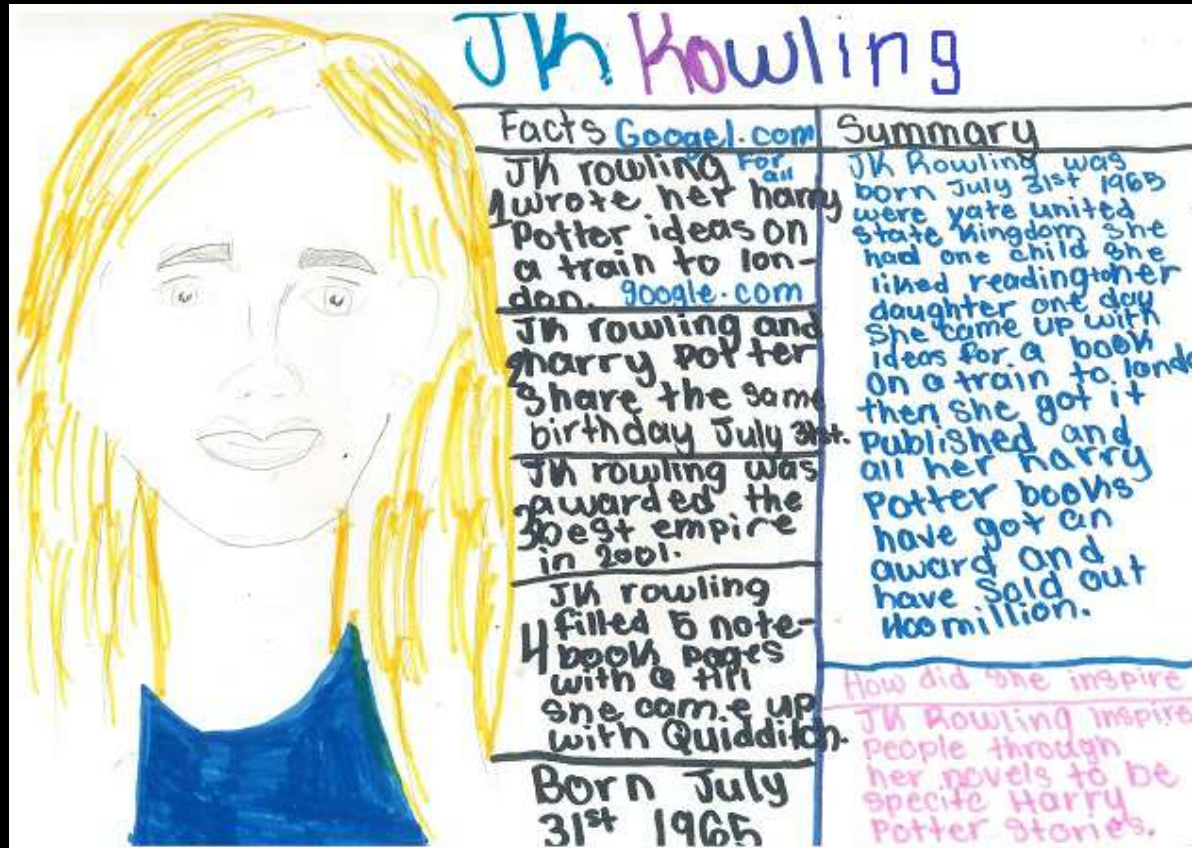 JK Rowling
Facts Googel.com
JK rowling For all
1 wrote her harry
Potter ideas on
a train to lon-
don. google.com
JK rowling and
2 harry potter
Share the same
birthday July 31st.
JK rowling was
awarded the
3 best empire
in 2001.
JK rowling
filled 5 note-
4 book pages
with Q till
she came up
with Quidditch.
Born July
31st 1965
Summary
JK Rowling was
born July 31st 1965
were yate united
state Kingdom she
had one child she
liked reading to her
daughter one day
She came up with
ideas for a book
on a train to londo
then she got it
Published and
all her harry
Potter books
have got an
award and
have sold out
400 million.
How did she inspire
JK Rowling inspire
People through
her novels to be
specifc Harry
Potter Stories.